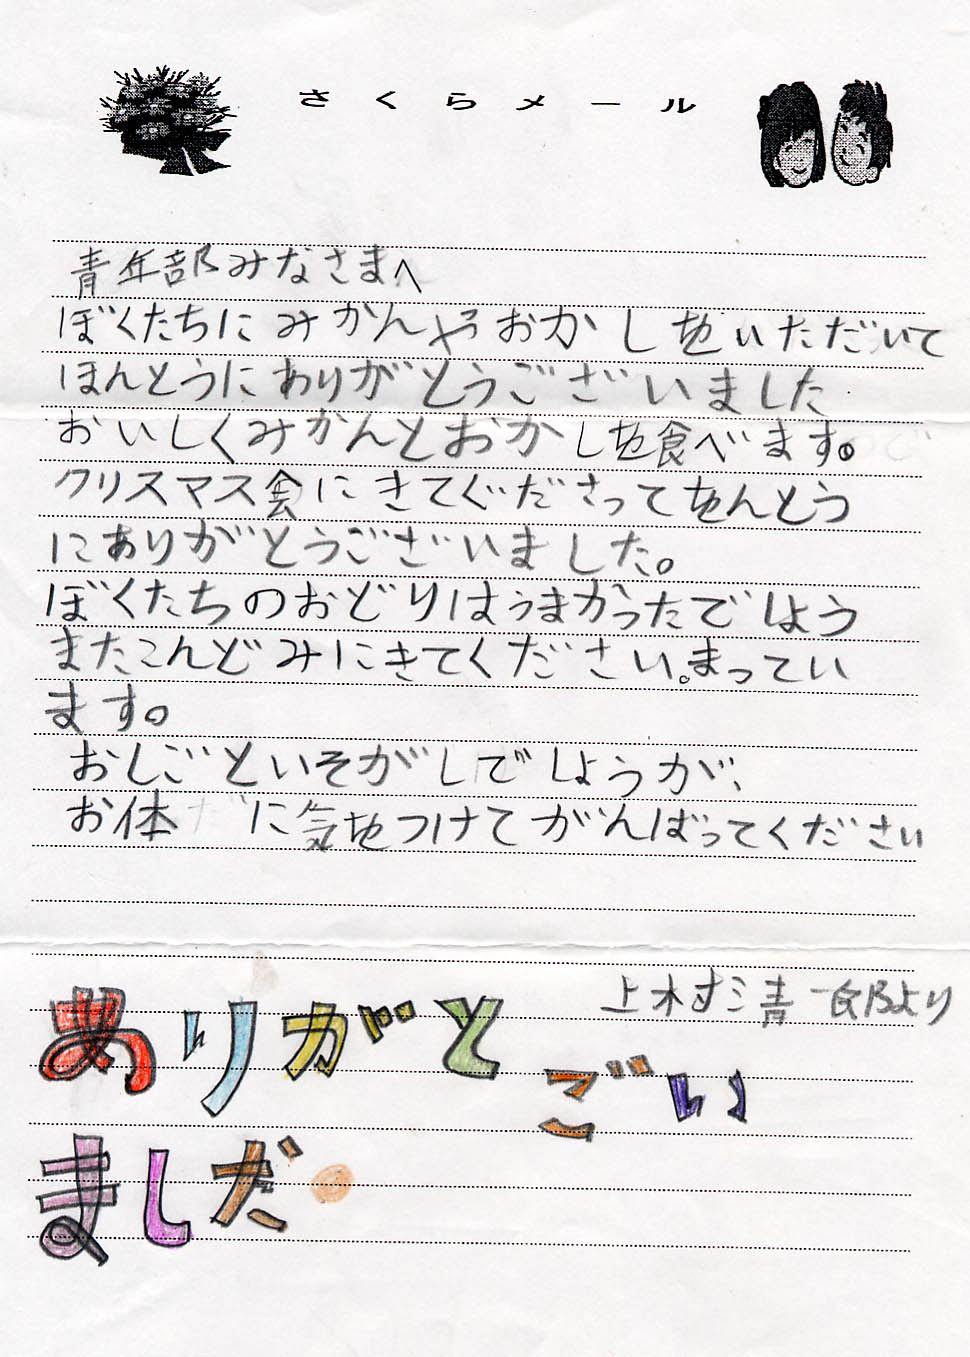 さくらメール
青年部みなさまへ
ぼくたちにみかんやおかしをいただいて
ほんとうにありがとうございました
おいしくみかんとおかしを食べます。
クリスマス会にきてぐださってをんとう
にありがとうございました。
ぼくたちのおどりはうまかったでしょう
またこんどみにきてください。まってい
ます。
おしごといそがしでしょうが、
お体に気をつけてがんばってください
上木寸三青一郎より
ありがとごい
ましだ